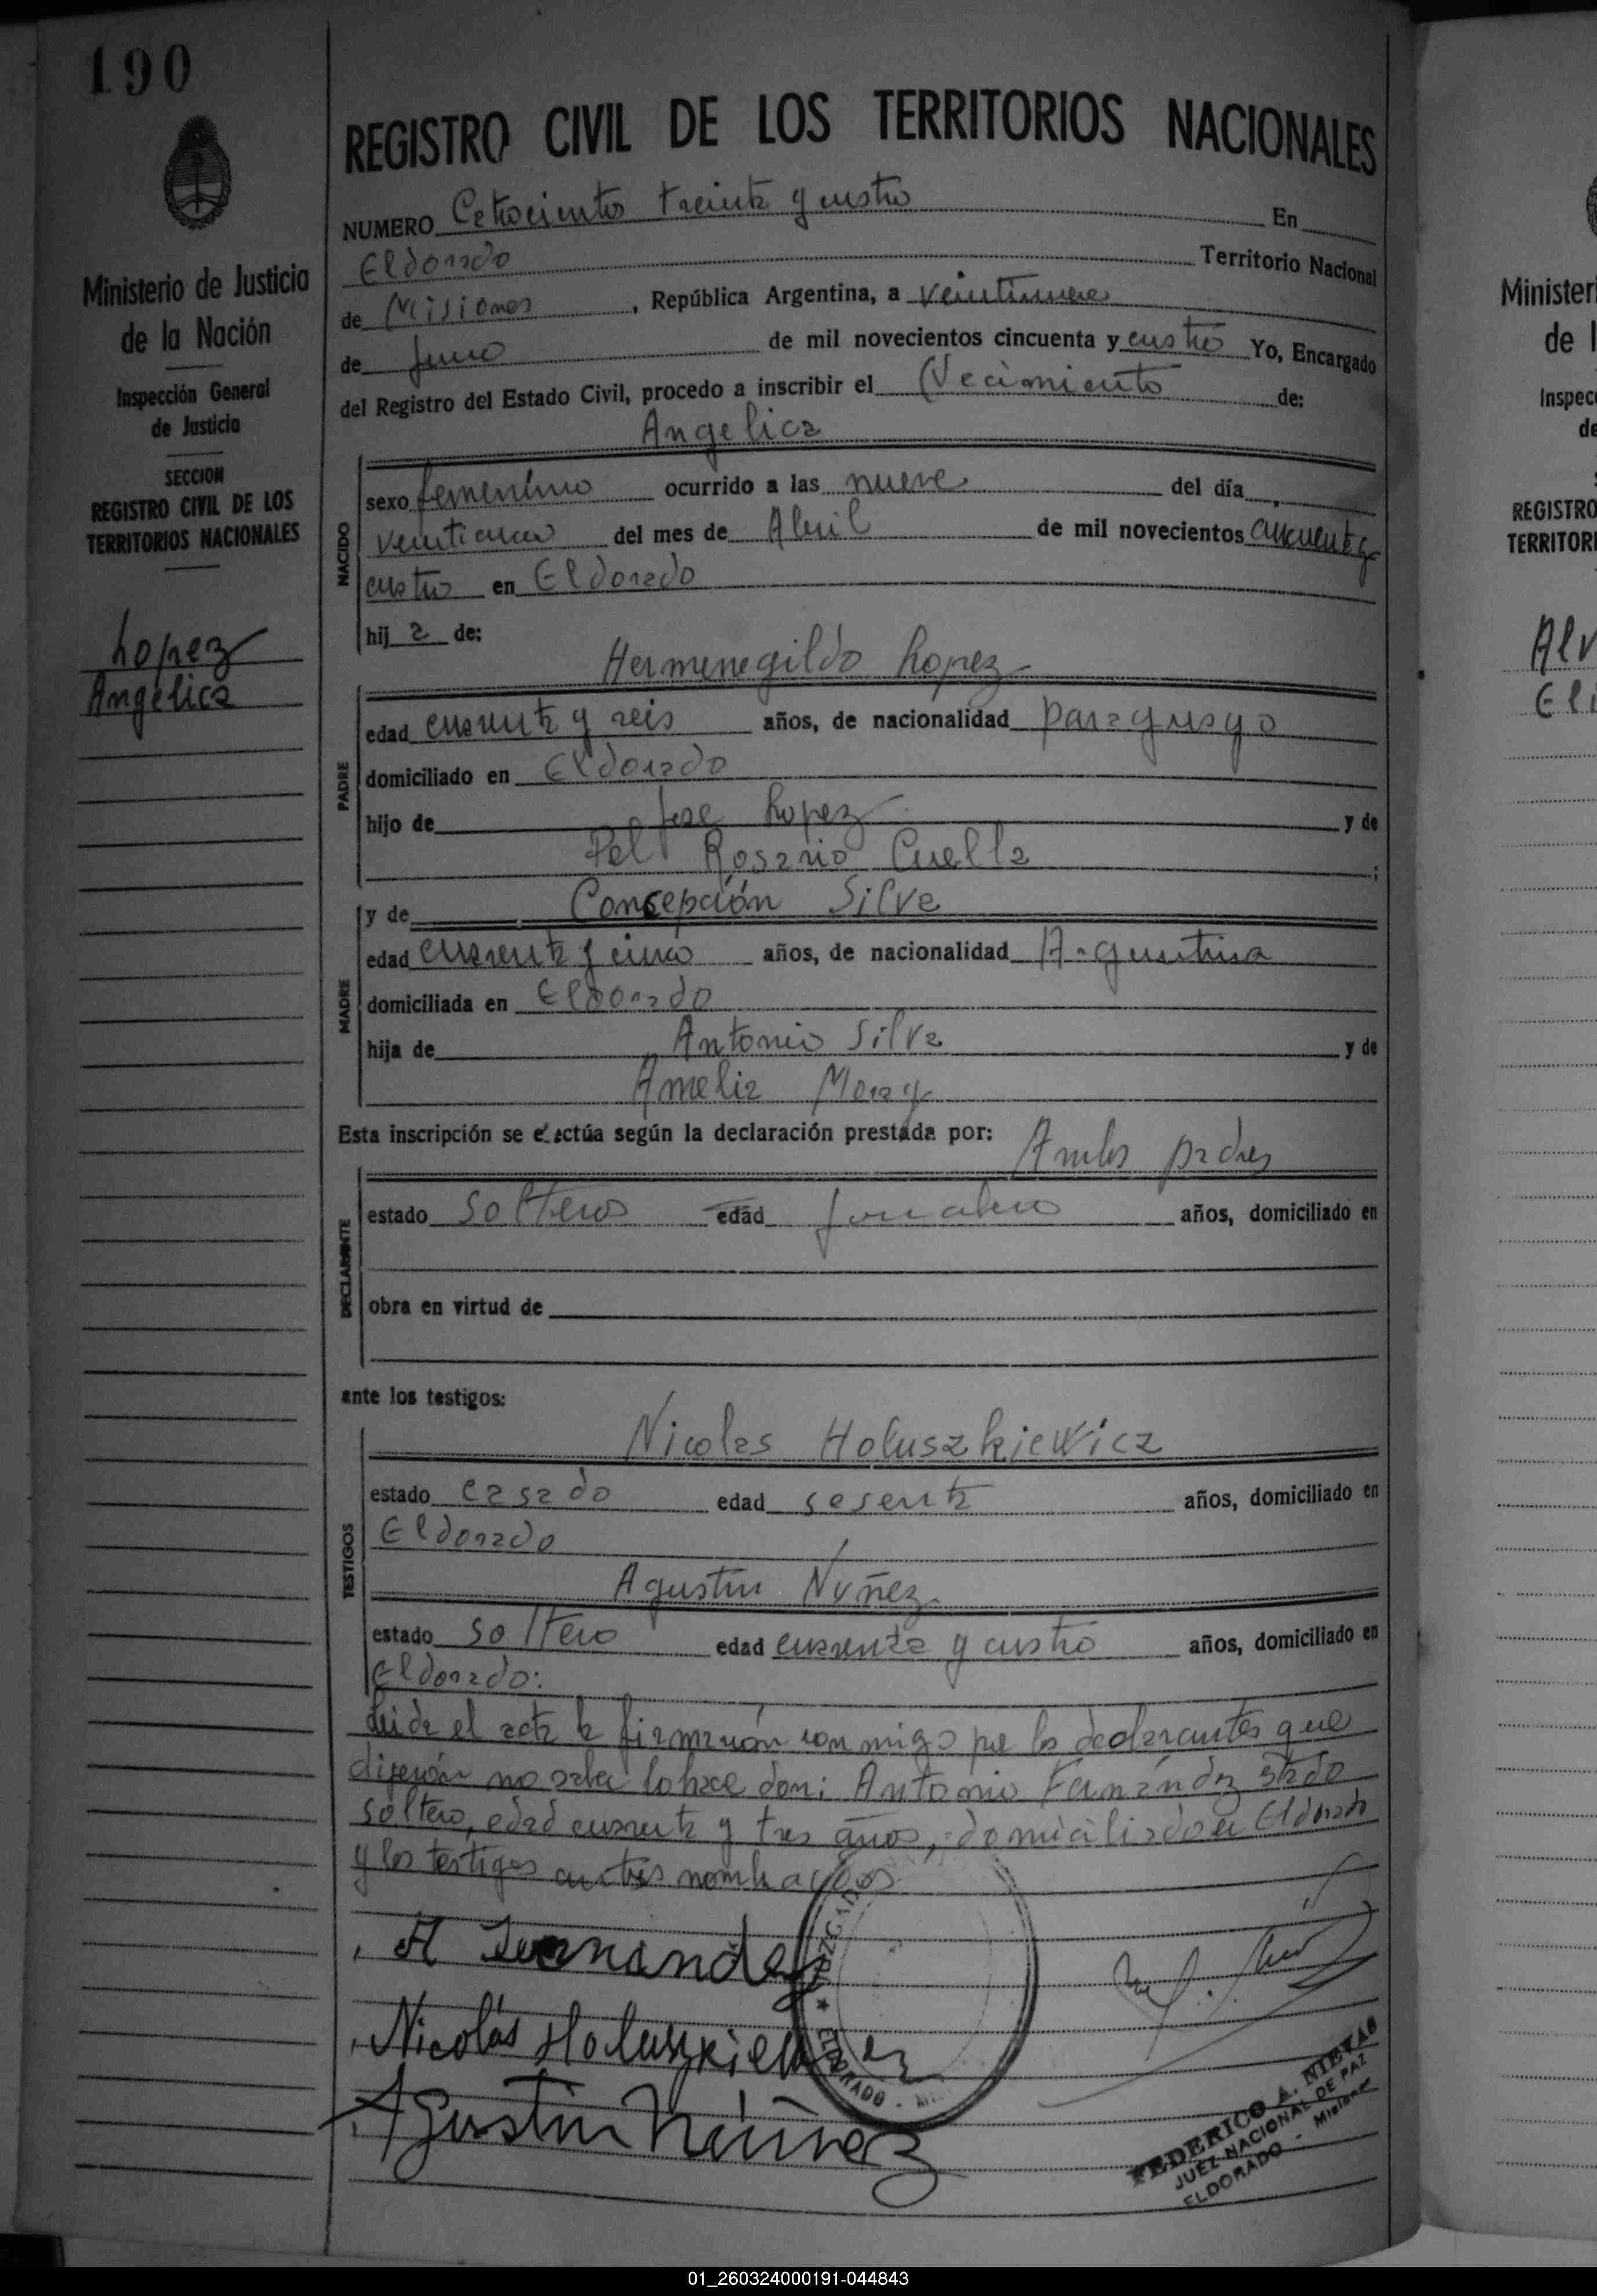 190
REGISTRO CIVIL DE LOS TERRITORIOS NACIONALES
NUMERO Cetrocientos treinta y custro En
Eldorado Territorio Nacional
de Misiones, República Argentina, a veintinueve
de Junio de mil novecientos cincuenta y custro Yo, Encargado
del Registro del Estado Civil, procedo a inscribir el Necimiento de:
Angelica
NACIDO
sexo femenino ocurrido a las nueve del día
veinticinco del mes de Abril de mil novecientos cincuenta y
custro en Eldorado
hij a de:
Hermenegildo Lopez
PADRE
edad cuarenta y seis años, de nacionalidad paraguayo
domiciliado en Eldorado
hijo de Jose Lopez y de
Del Rosario Cuella;
y de Concepción Silva
MADRE
edad cuarenta y cinco años, de nacionalidad Argentina
domiciliada en Eldorado
hija de Antonio Silva y de
Amelia
Esta inscripción se efectúa según la declaración prestada por: Ambos padres
DECLARANTE
estado solteros edad jornalero años, domiciliado en
obra en virtud de
ante los testigos:
Nicolas Holuszkiewicz
TESTIGOS
estado casado edad sesenta años, domiciliado en
Eldorado
Agustin Nuñez
estado soltero edad cuarenta y custro años, domiciliado en
Eldorado:
Leida el acta la firmarón conmigo por los declarantes que
dijerón no saber lo hace don: Antonio Fernández estado
soltero, edad cuarenta y tres años, domiciliado en Eldorado
y los testigos antes nombrados
A Fernandez
Nicolás Holuszkiewicz
Agustin Núñez
JUZGADO
ELDORADO
FEDERICO A. NIEVAS
JUEZ NACIONAL DE PAZ
ELDORADO - Misiones
Ministerio de Justicia
de la Nación
Inspección General
de Justicia
SECCION
REGISTRO CIVIL DE LOS
TERRITORIOS NACIONALES
Lopez
Angelica
Minister
de l
Inspec
de
REGISTRO
TERRITOR
Alv
Eli
01_260324000191-044843